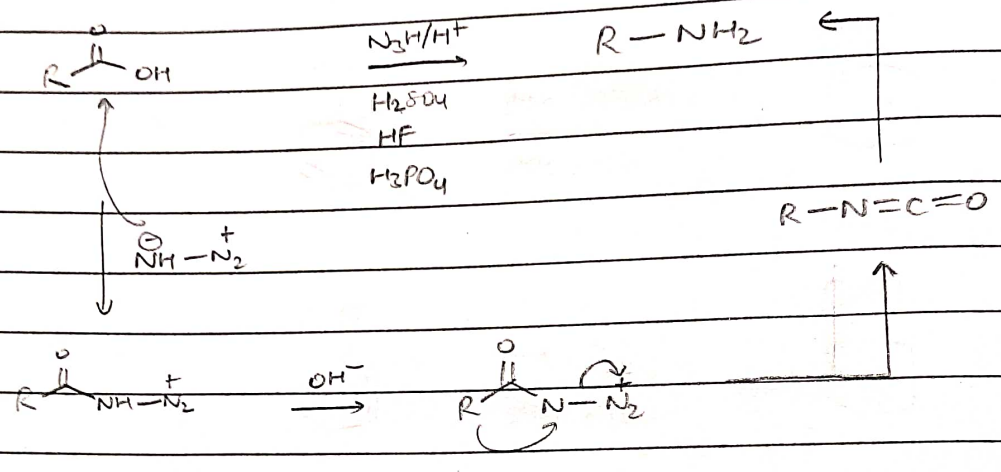 O
R OH
N3H/H+
R — NH2
H2SO4
HF
H3PO4
R — N = C = O
⊖ +
NH — N2
O
R NH — N2 +
OH-
O
R N — N2 +